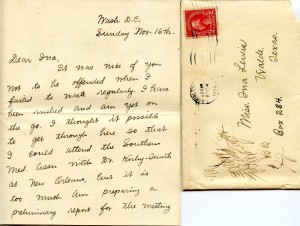 Wash. D.C.
Sunday Nov. 16th.
Dear Ina,
It was nice of you
not to be offended when I
failed to write regularly. I have
been rushed and am yet on
the go. I thought it possible
to get through here so that
I could attend the Southern
Med. Assn with Dr. Kirby-Smith
at New Orleans, but it is
too much. Am preparing a
preliminary report for the meeting
Miss Ina Lewis
Uvalde,
Texas.
Box 284.